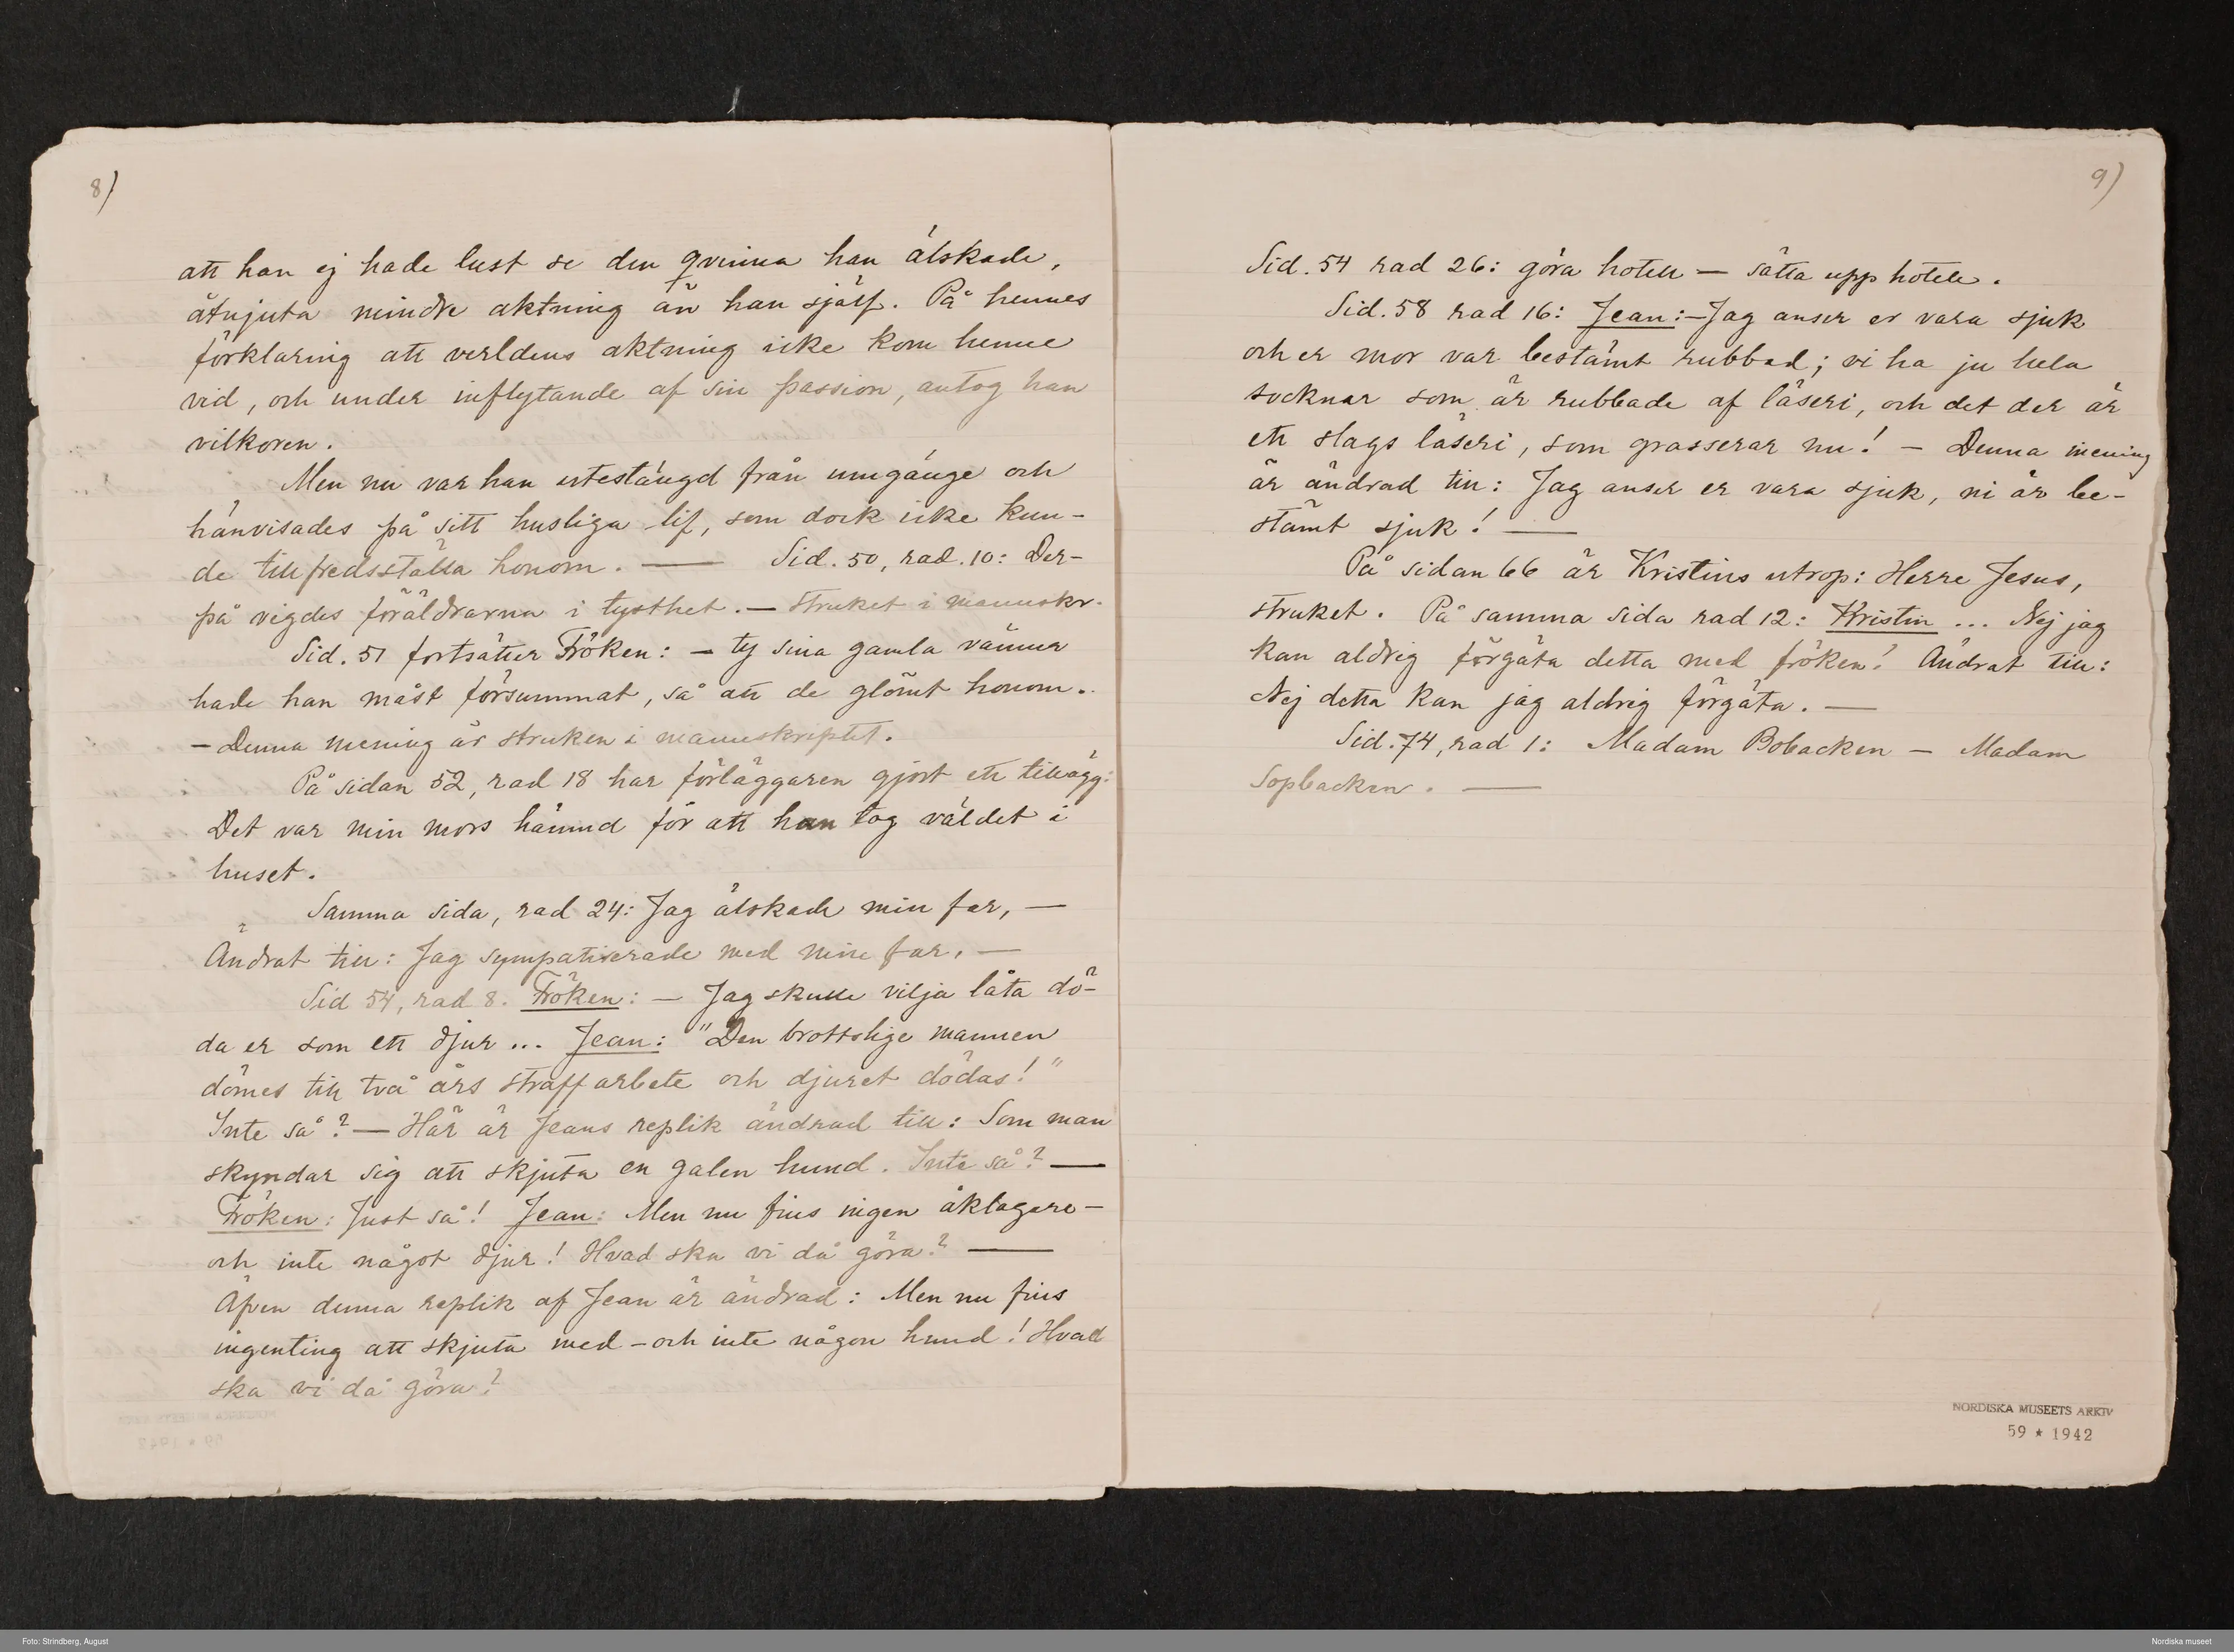 8)
att han ej hade lust se den qvinna han älskade,
åtnjuta mindre aktning än han sjelf. På hennes
förklaring att verldens aktning icke kom henne
vid, och under inflytande af sin passion, antog han
vilkoren.
Men nu var han utestängd från umgänge och
hänvisades på sitt husliga lif, som dock icke kun-
de tillfredsställa honom. — Sid. 50, rad. 10: Der-
på vigdes föräldrarna i tysthet. — Struket i manuskr.
Sid. 51 fortsätter Fröken: — ty sina gamla vänner
hade han måst försummat, så att de glömt honom.
— Denna mening är struken i manuskriptet.
På sidan 52, rad 18 har förläggaren gjort ett tillägg:
Det var min mors hämnd för att han tog väldet i
huset.
Samma sida, rad 24: Jag älskade min far, —
Ändrat till: Jag sympatiserade med min far, —
Sid 54, rad 8. Fröken: — Jag skulle vilja låta dö-
da er som ett djur ... Jean: "Den brottslige mannen
dömes till två års straffarbete och djuret dödas!"
Inte så? — Här är Jeans replik ändrad till: Som man
skyndar sig att skjuta en galen hund. Inte så? —
Fröken: Just så! Jean: Men nu fins ingen åklagare —
och inte något djur! Hvad ska vi då göra? —
Äfven denna replik af Jean är ändrad: Men nu fins
ingenting att skjuta med — och inte någon hund! Hvad
ska vi då göra?
9)
Sid. 54 rad 26: göra hotell — sätta upp hotell.
Sid. 58 rad 16: Jean: — Jag anser er vara sjuk
och er mor var bestämt rubbad; vi ha ju hela
socknar som är rubbade af läseri, och det der är
ett slags läseri, som grasserar nu! — Denna mening
är ändrad till: Jag anser er vara sjuk, ni är be-
stämt sjuk! —
På sidan 66 är Kristins utrop: Herre Jesus,
struket. På samma sida rad 12: Kristin ... Nej jag
kan aldrig förgäta detta med fröken! Ändrat till:
Nej detta kan jag aldrig förgäta. —
Sid. 74, rad 1: Madam Bobacken — Madam
Sopbacken. —
NORDISKA MUSEETS ARKIV
59 ★ 1942
Foto: Strindberg, August
Nordiska museet